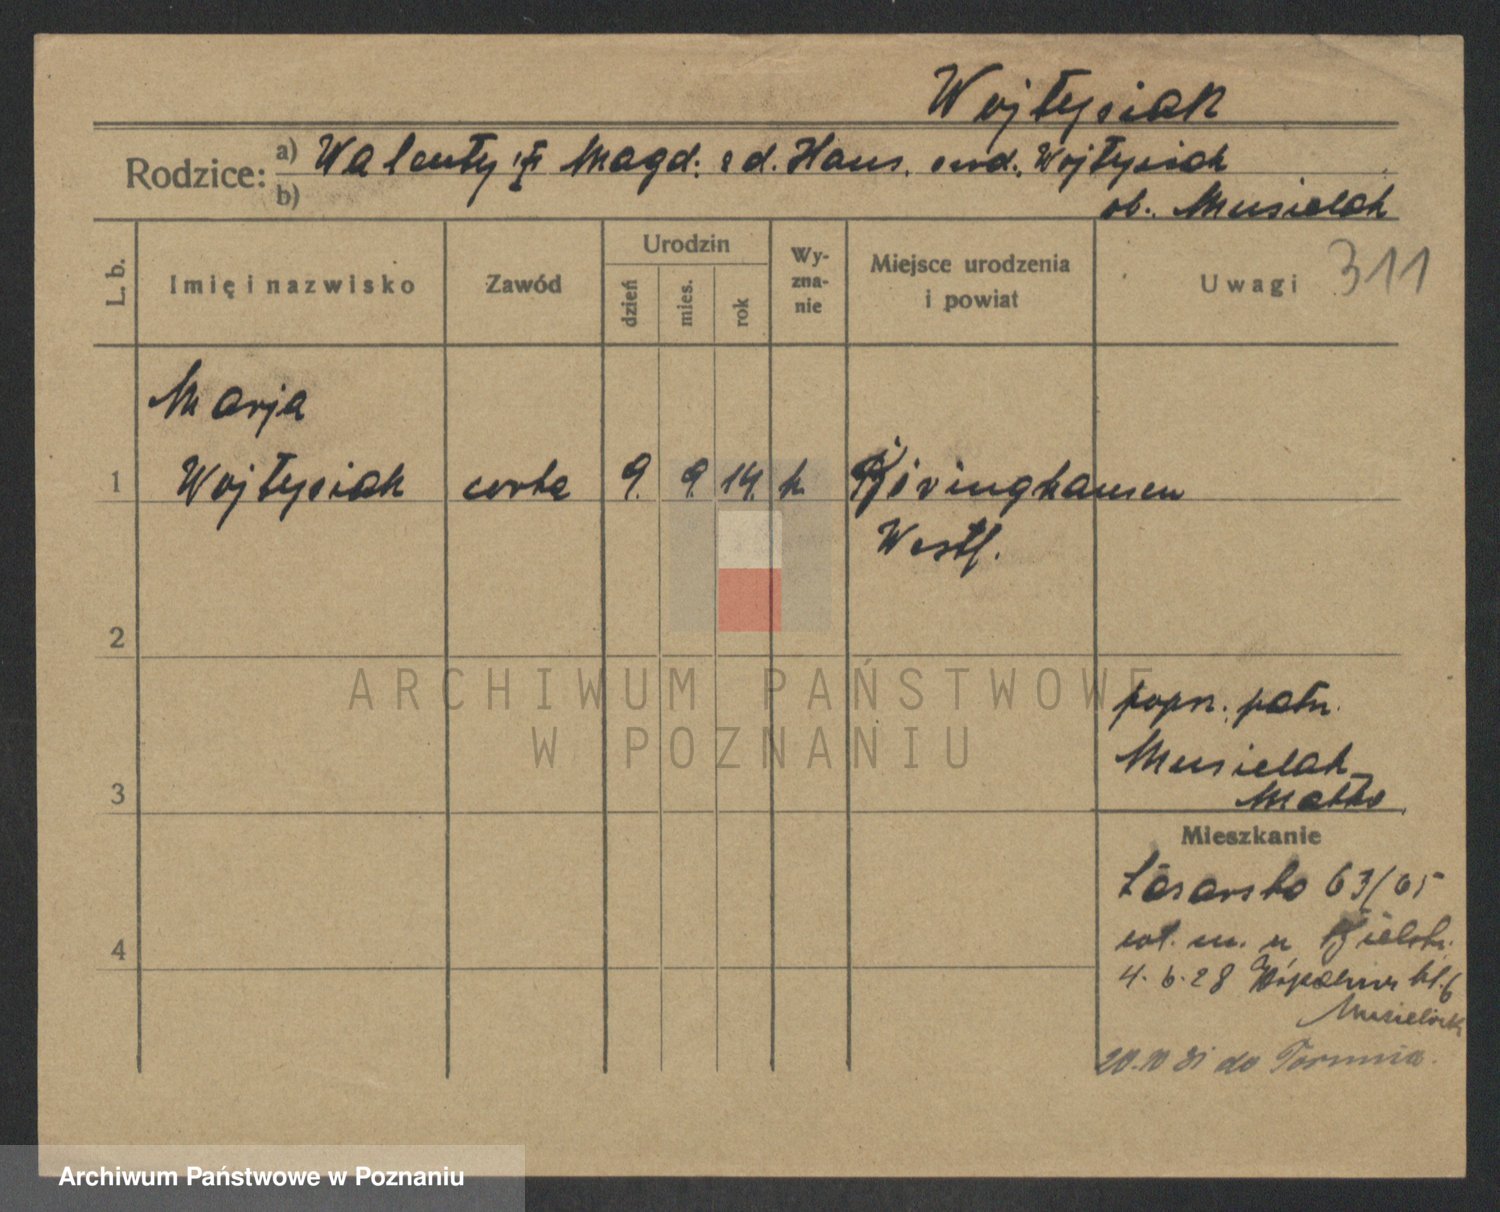 Wojtysiak
Rodzice: a) Walenty i Magd. zd. Haus. owd. Wojtysiak
b) ob. Musielak
L. b. Imię i nazwisko Zawód Urodzin dzień mies. rok Wy-zna-nie Miejsce urodzenia i powiat Uwagi 311
Marja
1 Wojtysiak corka 9. 9. 14. k
Westf.
2
popn. patrz.
Musielak
3
Mieszkanie
63/65
4
4.6.28
Musielak
20.10.31 do Torunia.
ARCHIWUM PAŃSTWOWE
W POZNANIU
Archiwum Państwowe w Poznaniu